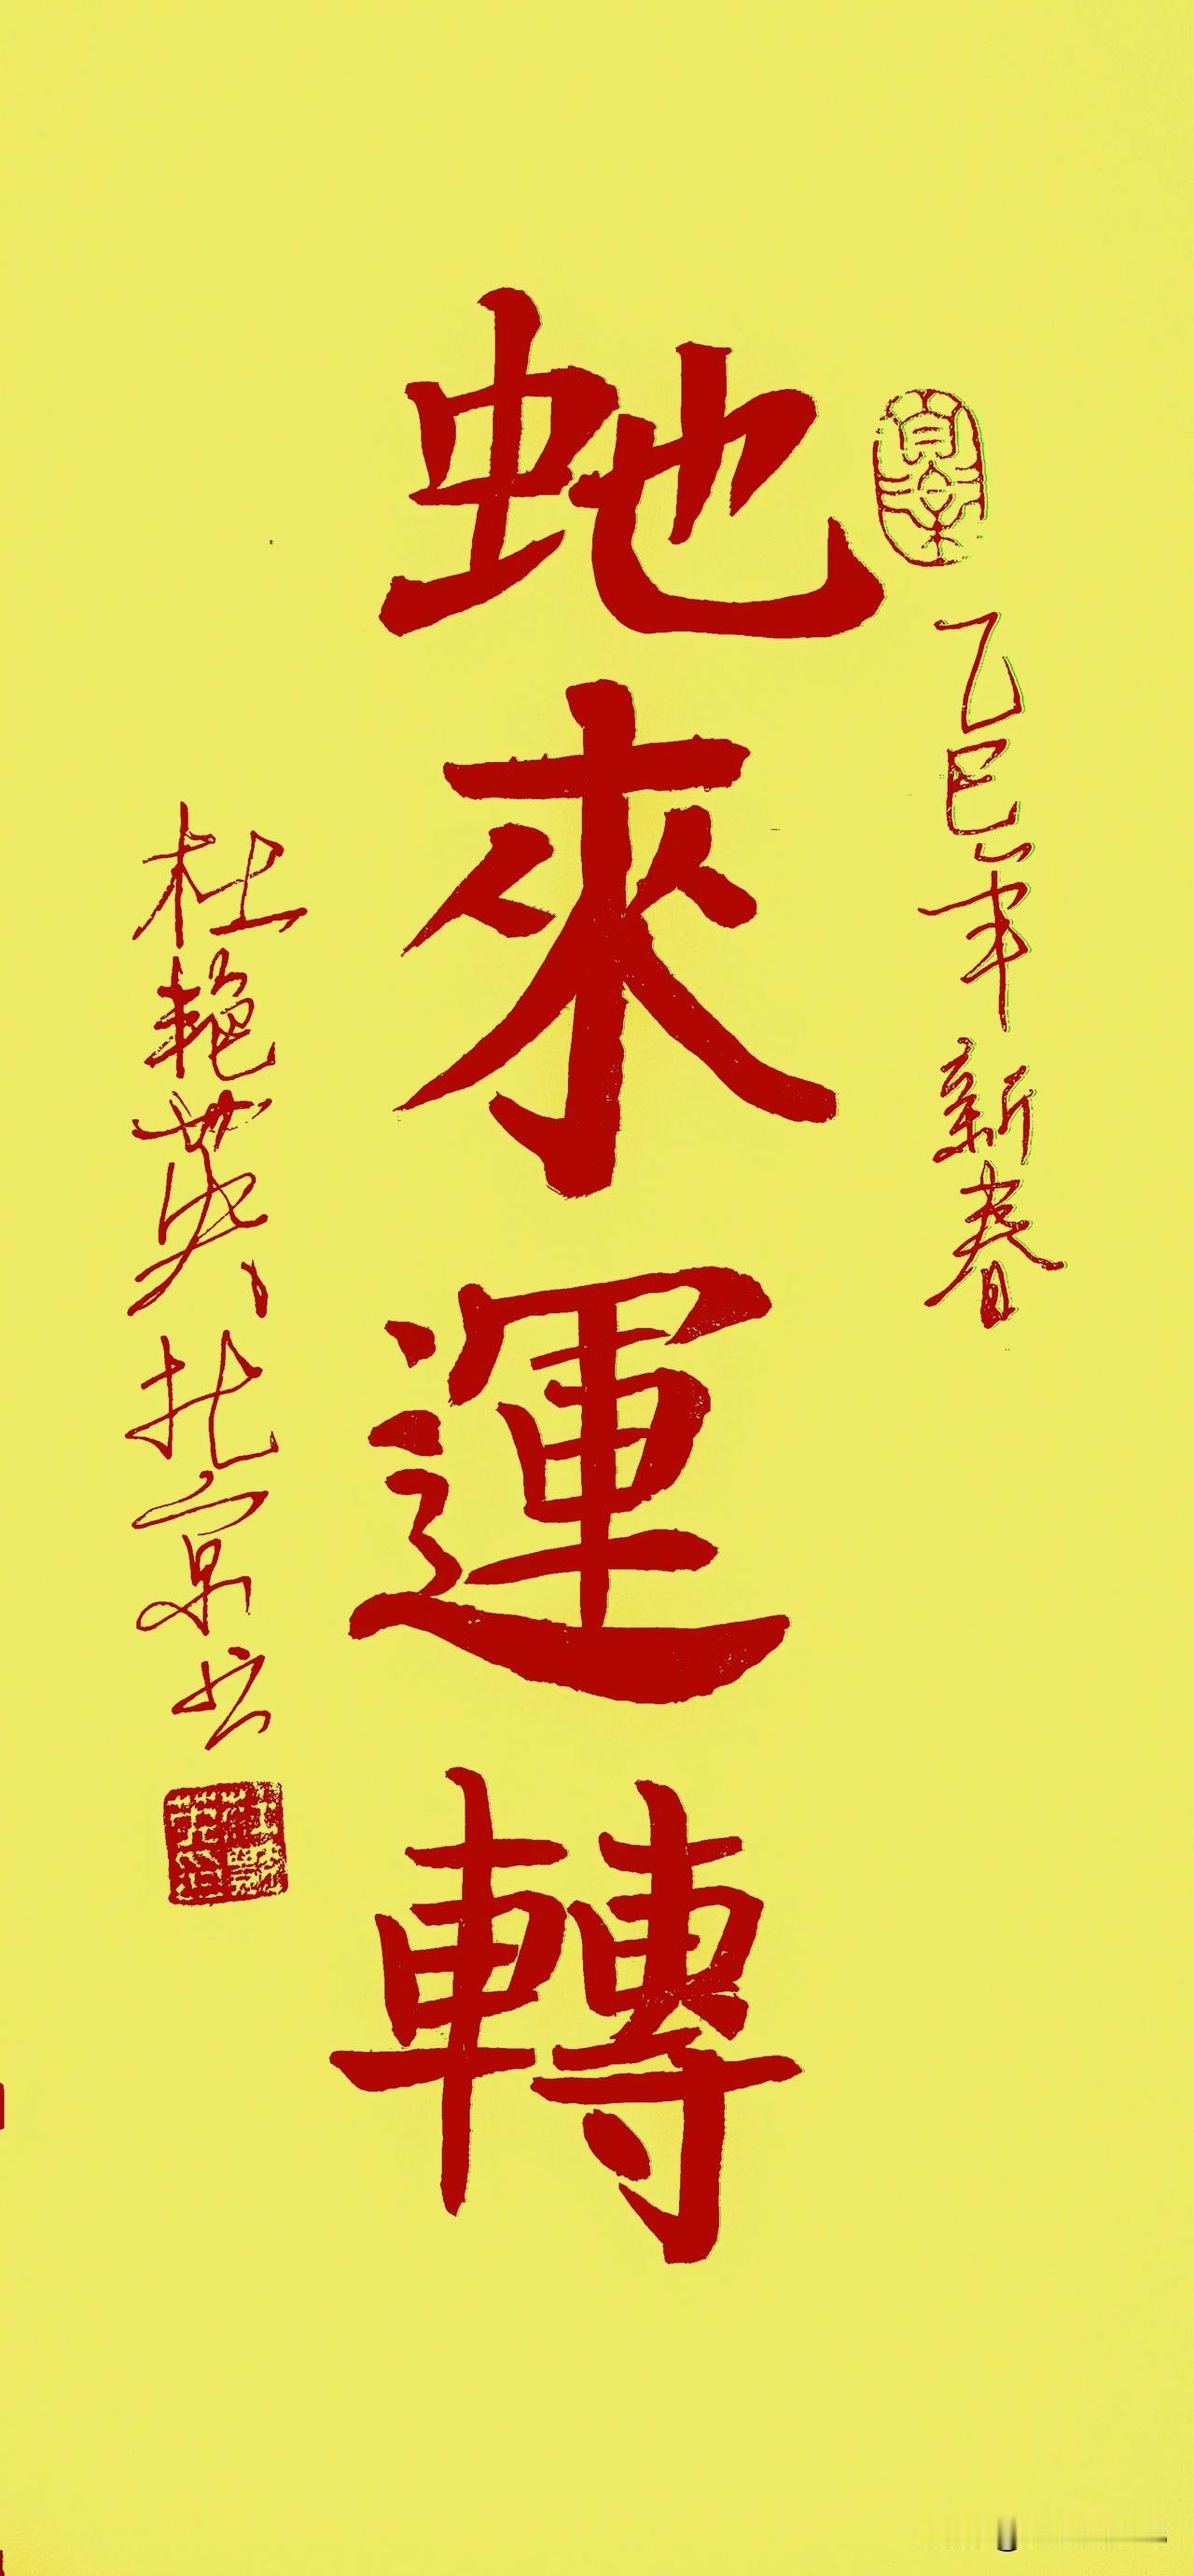 乙巳年新春
虵來運轉
杜艳英北京书